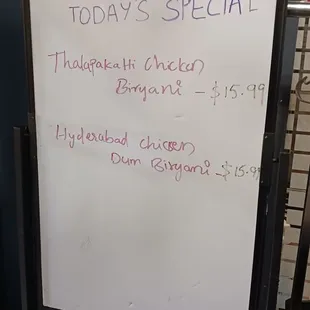 TODAY'S SPECIAL
Thalapakatti chicken
Biryani - $15.99
Hyderabad chicken
Dum Biryani - $15.99